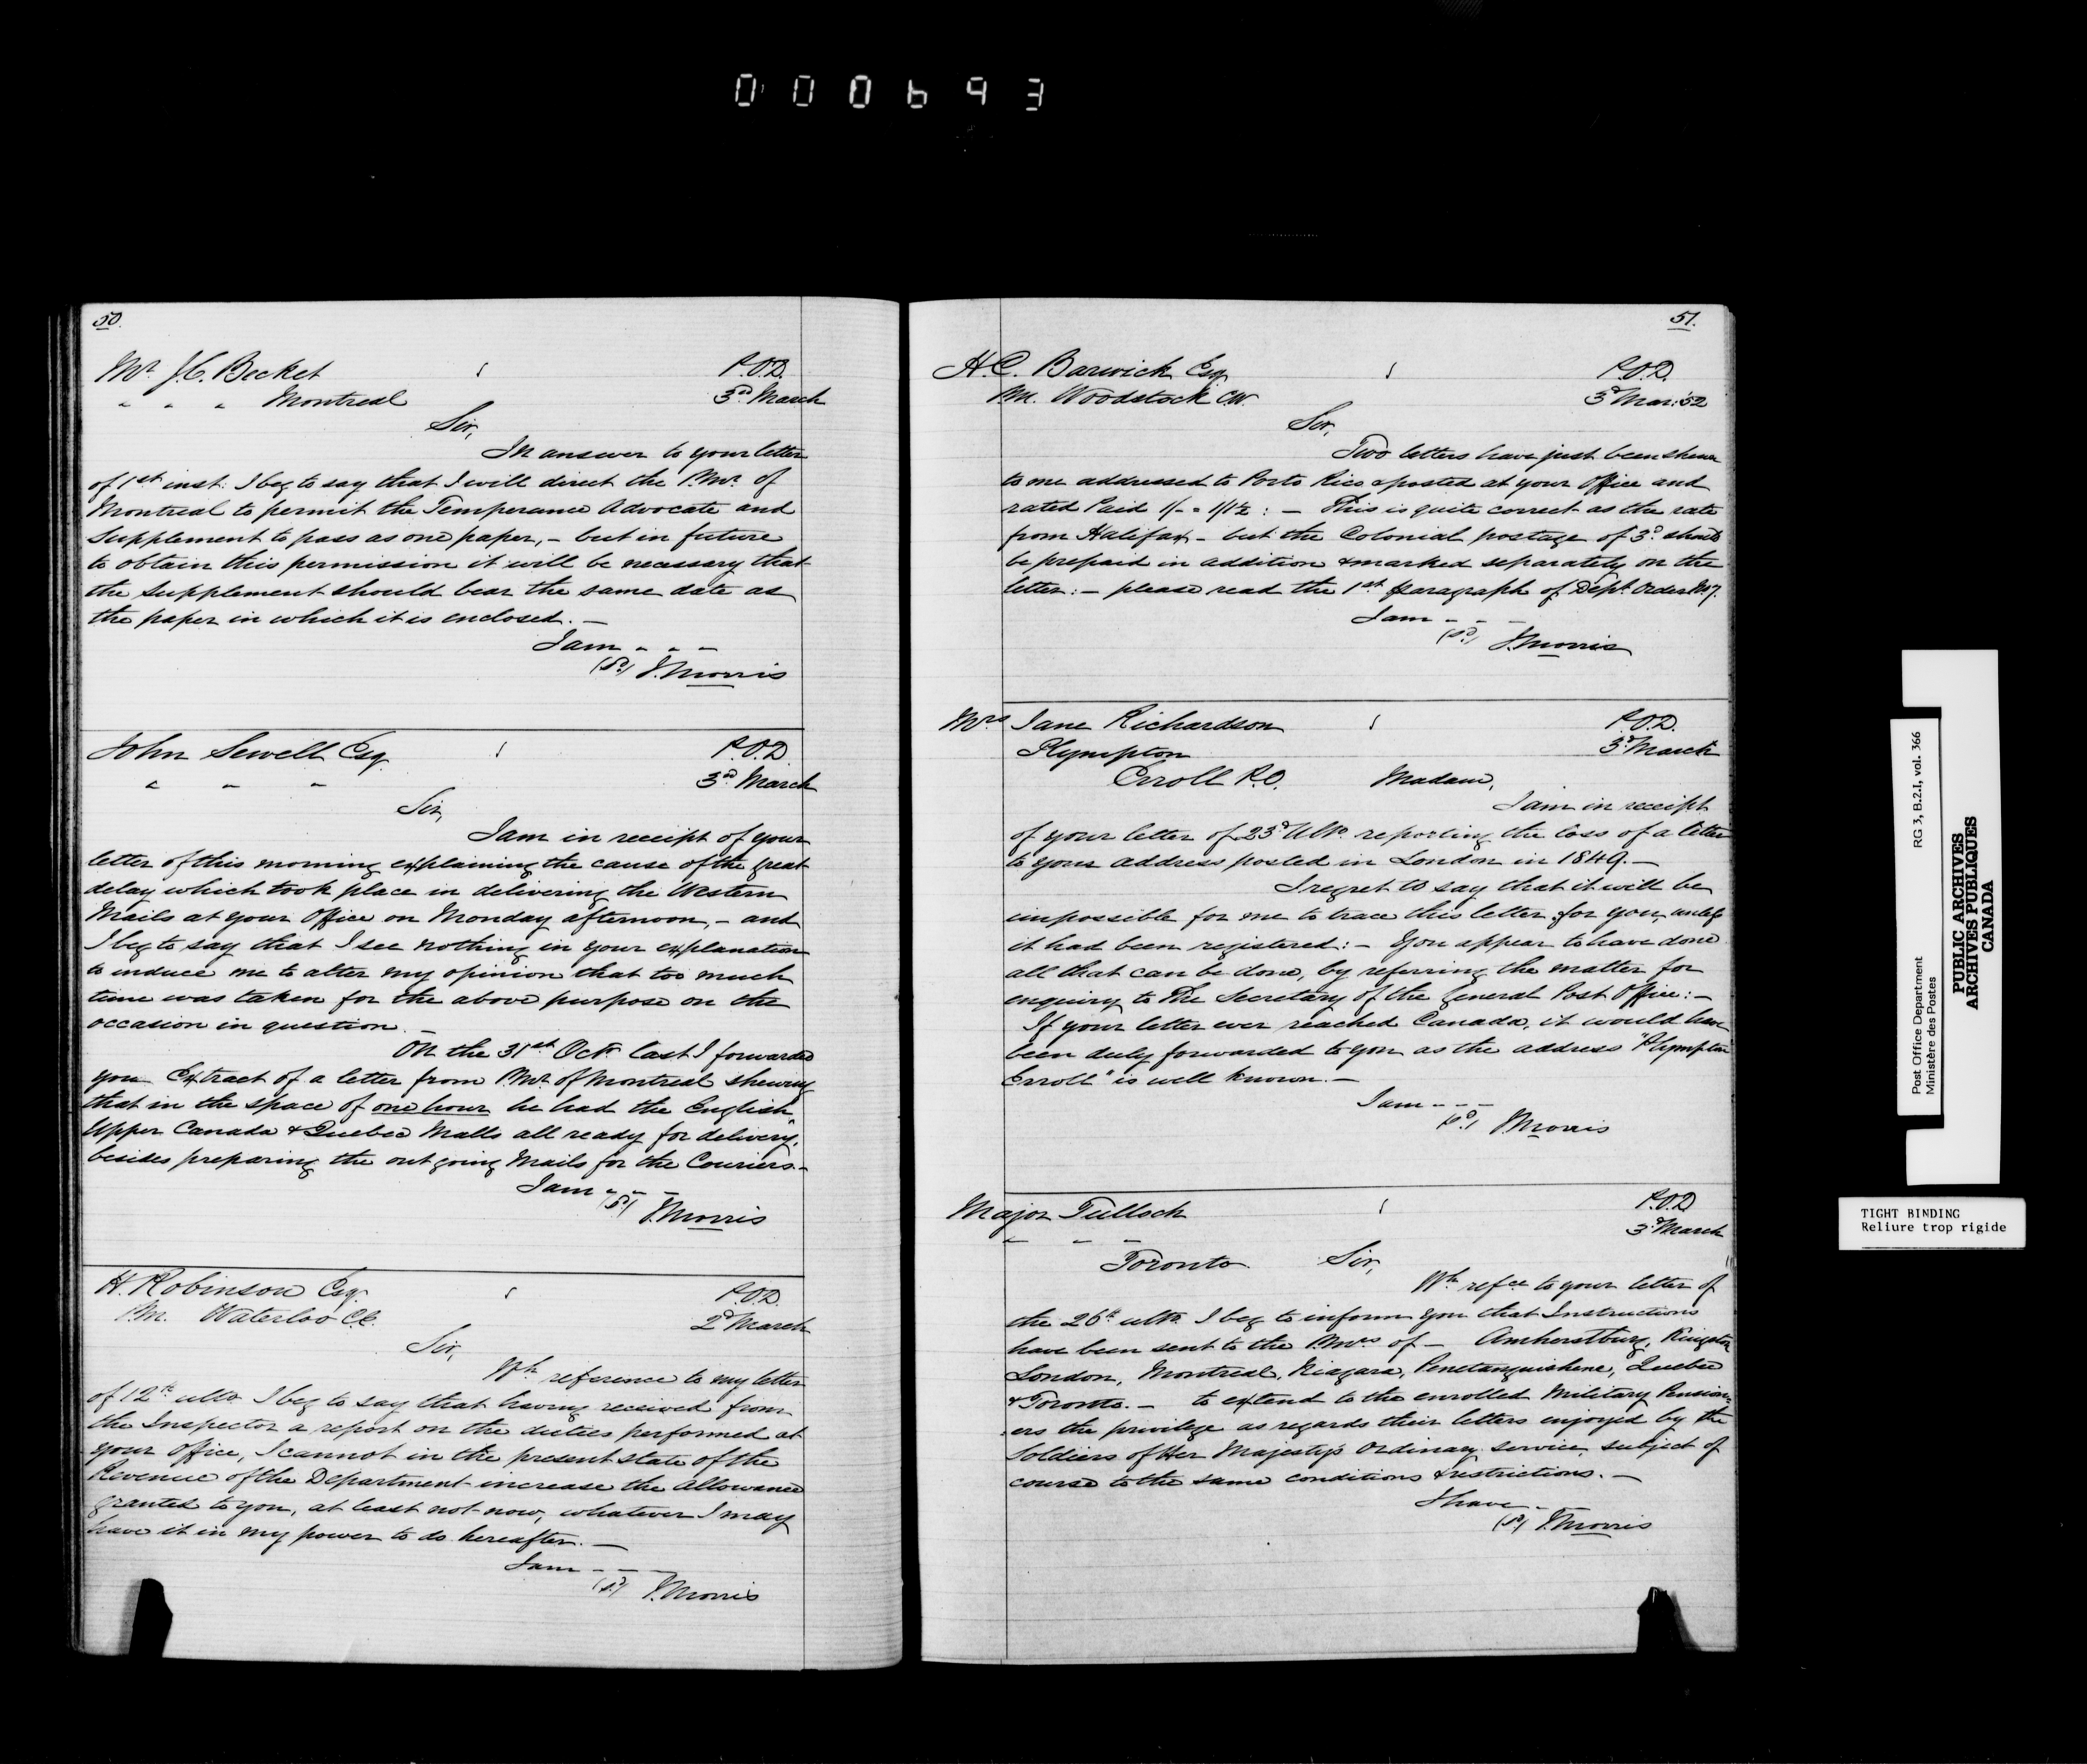 000693
50.
Mr. J.C. Becket P.O.D.
" " " Montreal 3rd March
Sir,
In answer to your letter
of 1st inst: I beg to say that I will direct the P.Mr. of
Montreal to permit the Temperance Advocate and
Supplement to pass as one paper, - but in future
to obtain this permission it will be necessary that
the Supplement should bear the same date as
the paper in which it is enclosed. -
I am - - -
(sd) J. Morris
John Sewell Esq P.O.D.
" " " 3rd March
Sir,
I am in receipt of your
letter of this morning explaining the cause of the great
delay which took place in delivering the Western
Mails at your Office on Monday afternoon, - and
I beg to say that I see nothing in your explanation
to induce me to alter my opinion that too much
time was taken for the above purpose on the
occasion in question. -
On the 31st Octr. last I forwarded
you Extract of a letter from P.Mr. of Montreal shewing
that in the space of one hour he had the English,
Upper Canada & Quebec Mails all ready for delivery,
besides preparing the outgoing Mails for the Couriers. -
I am - - -
(sd) J. Morris
H. Robinson Esq. P.O.D.
P.M. Waterloo C.E. 2d March
Sir,
Wh. reference to my letter
of 12th ulto. I beg to say that having received from
the Inspector a report on the duties performed at
your Office, I cannot in the present state of the
Revenue of the Department increase the allowance
granted to you, at least not now, whatever I may
have it in my power to do hereafter. -
I am - - -
(sd) J. Morris
51.
H.C. Barwick Esq P.O.D.
P.M. Woodstock C.W. 3d Mar: '52
Sir,
Two letters have just been shewn
to me addressed to Porto Rico & posted at your Office and
rated Paid 1/- = 1/1½ : - This is quite correct as the rate
from Halifax - but the Colonial postage of 3d. should
be prepaid in addition & marked separately on the
letter: - please read the 1st paragraph of Dept. Order No. 7.
I am - - -
(sd) J. Morris
Mrs Jane Richardson P.O.D.
Plympton 3d March
Erroll P.O. Madam,
I am in receipt
of your letter of 23d Ulto. reporting the loss of a letter
to your address posted in London in 1849. -
I regret to say that it will be
impossible for me to trace this letter for you, unless
it had been registered: - You appear to have done
all that can be done, by referring the matter for
enquiry to The Secretary of the General Post Office: -
If your letter ever reached Canada, it would have
been duly forwarded to you as the address "Plympton
Erroll" is well known. -
I am - - -
(sd) J. Morris
Major Tulloch P.O.D
" " " 3d March
Toronto Sir,
Wh. refce to your letter of
the 26th ulto. I beg to inform you that Instructions
have been sent to the P.Mrs of - Amherstburg, Kingston
London, Montreal, Niagara, Penetanguishene, Quebec
& Toronto. - to extend to the enrolled Military Pension-
-ers the privilege as regards their letters enjoyed by the
Soldiers of Her Majesty's Ordinary service, subject of
course to the same conditions & restrictions. -
I have - -
(sd) J. Morris
Post Office Department RG 3, B.2.I, vol. 366
Ministère des Postes
PUBLIC ARCHIVES
ARCHIVES PUBLIQUES
CANADA
TIGHT BINDING
Reliure trop rigide